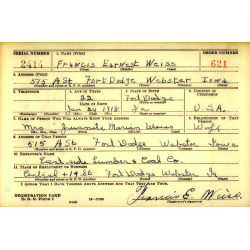 SERIAL NUMBER 1. NAME (Print) ORDER NUMBER
2414 Francis Earnest Weiss 621
2. ADDRESS (Print)
515 A St. Fort Dodge Webster Iowa
3. TELEPHONE 4. AGE IN YEARS 5. PLACE OF BIRTH 6. COUNTRY OF CITIZENSHIP
22 Fort Dodge
DATE OF BIRTH
Jan 24 1918 Ia U.S.A.
7. NAME OF PERSON WHO WILL ALWAYS KNOW YOUR ADDRESS 8. RELATIONSHIP OF THAT PERSON
Mrs. Marian Weiss Wife
9. ADDRESS OF THAT PERSON
515 A St Fort Dodge Webster Iowa
10. EMPLOYER'S NAME
Lumber & Coal Co.
11. PLACE OF EMPLOYMENT OR BUSINESS
Central & 19 St Fort Dodge Webster Ia
I AFFIRM THAT I HAVE VERIFIED ABOVE ANSWERS AND THAT THEY ARE TRUE.
Francis E. Weiss